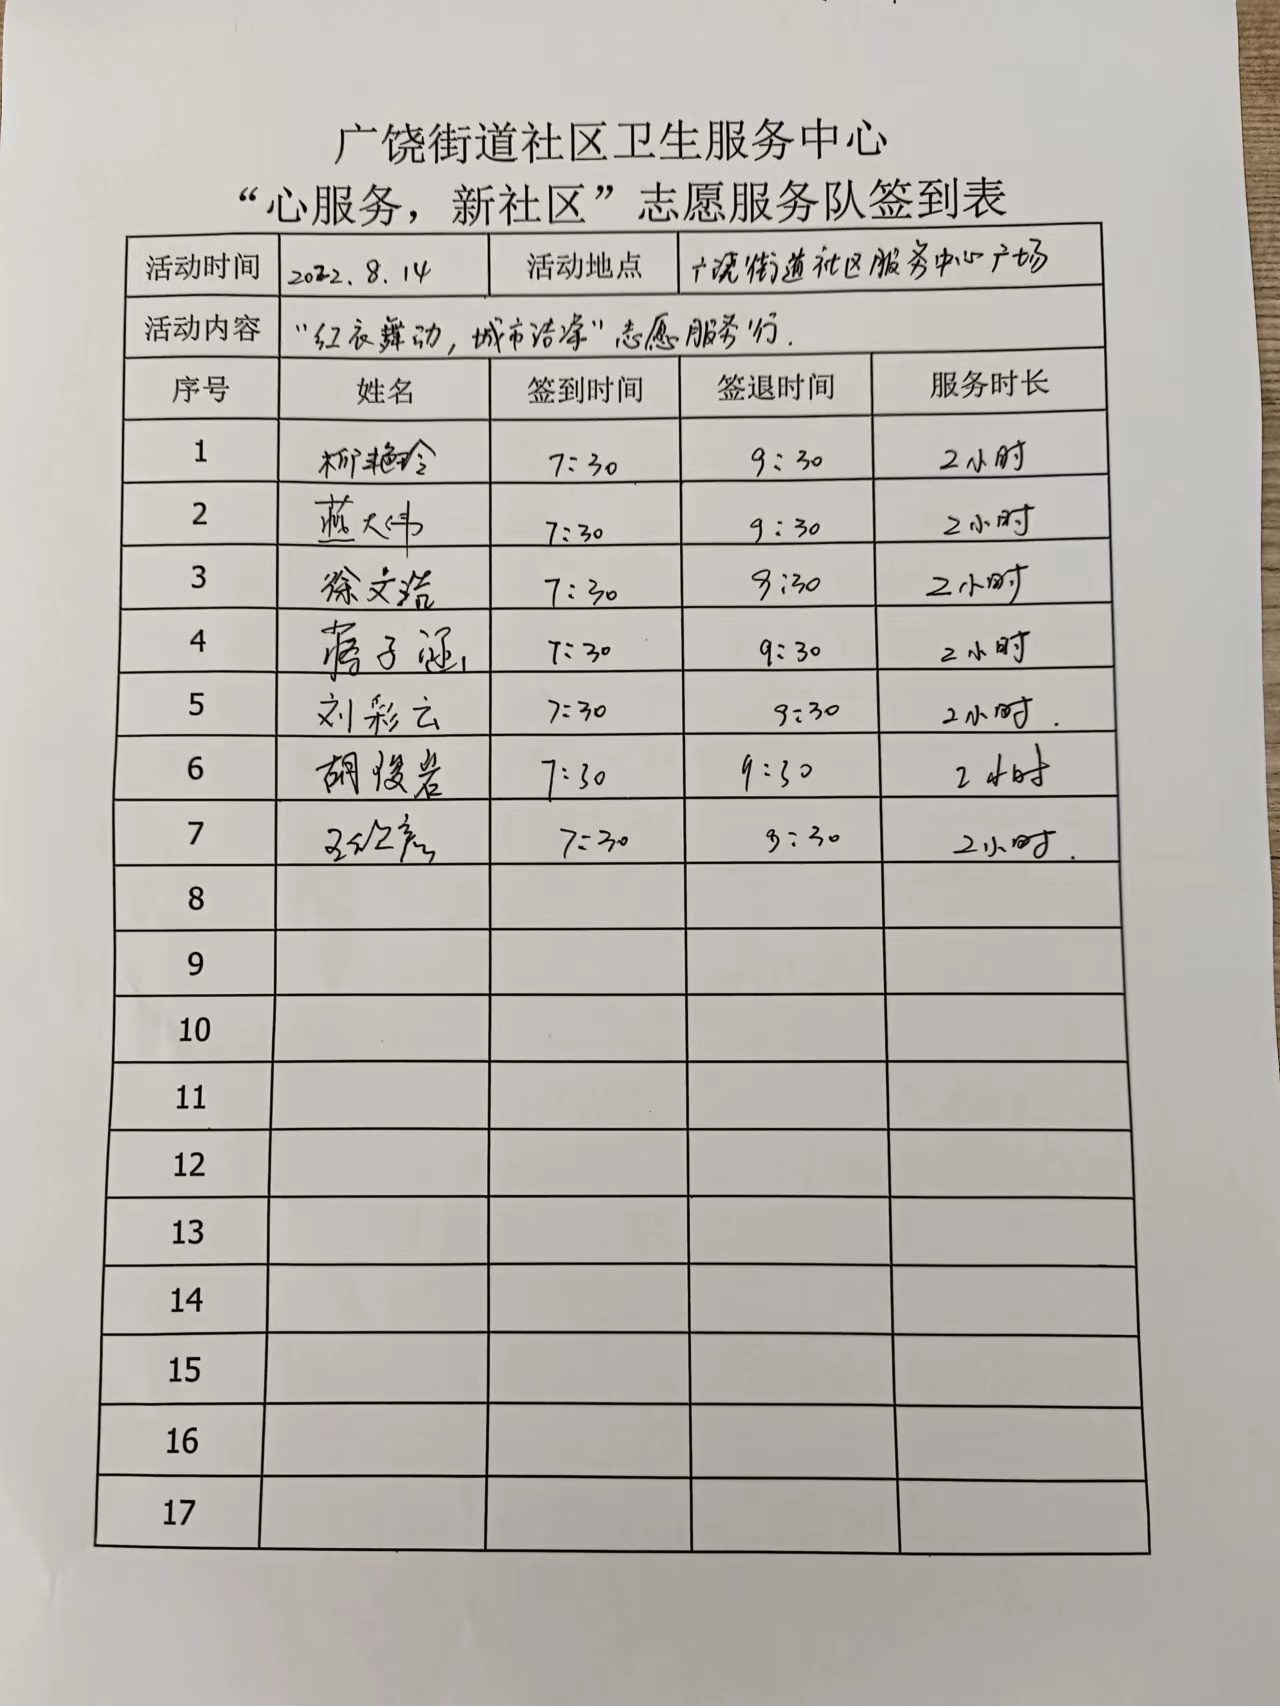 广饶街道社区卫生服务中心
“心服务，新社区”志愿服务队签到表
活动时间 2022.8.14 活动地点 广饶街道社区服务中心广场
活动内容 “红衣舞动，城市洁净”志愿服务行.
序号 姓名 签到时间 签退时间 服务时长
1 柳艳玲 7:30 9:30 2小时
2 燕大伟 7:30 9:30 2小时
3 徐文浩 7:30 9:30 2小时
4 蒋子涵 7:30 9:30 2小时
5 刘彩云 7:30 9:30 2小时.
6 胡俊岩 7:30 9:30 2小时
7 7:30 9:30 2小时.
8
9
10
11
12
13
14
15
16
17